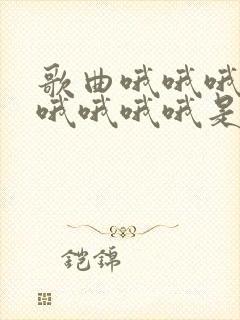 歌曲哦哦哦
哦哦哦哦是
铠锦